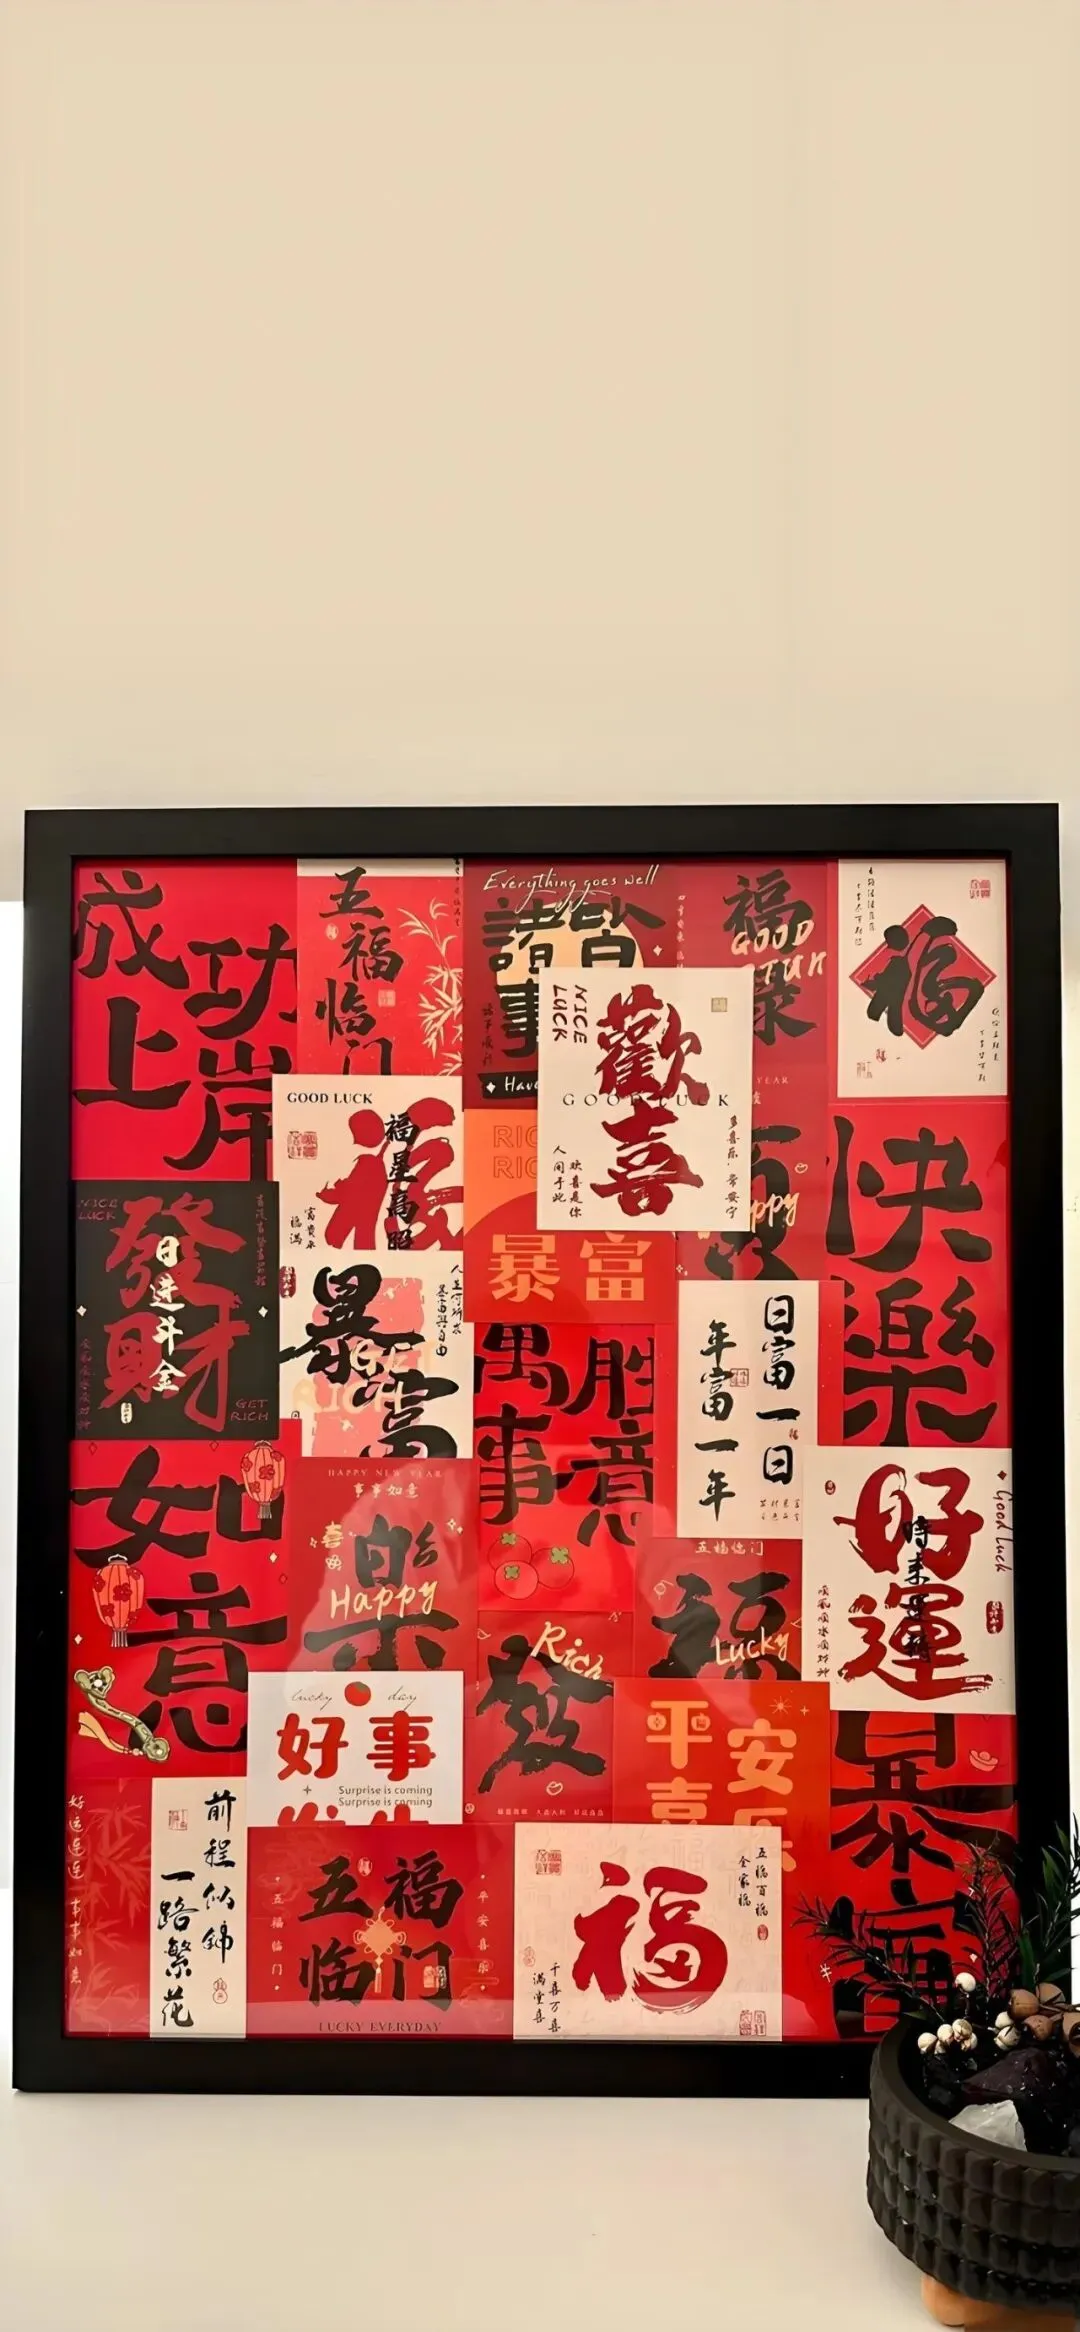 成功
上岸
五福
临门
Everything goes well
諸事皆
Have
福
GOOD
禄
福
NICE
LUCK
歡
GOOD LUCK
喜
欢喜是你
人间予此
GOOD LUCK
福
福星高照
富貴
福满
RIC
RIC
暴富
快樂
NICE
LUCK
發財
日进斗金
GET
RICH
暴富
GET
RICH
萬事
胜意
日富一日
年富一年
如意
HAPPY NEW YEAR
事事如意
喜
樂
Happy
五福临门
福
Lucky
Good Luck
好運
時来運轉
Rich
發
lucky day
好事
Surprise is coming
Surprise is coming
发生
平安
喜乐
暴富
好运连连 事事如意
前程似锦
一路繁花
五福
临门
五福临门
平安喜乐
LUCKY EVERYDAY
福
五福百福
全家福
千喜万喜
满堂喜